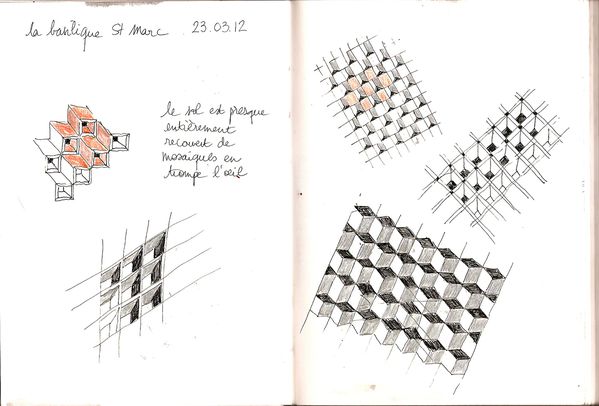 la basilique St Marc 23.03.12
le sol est presque
entièrement
recouvert de
mosaïques en
trompe l'œil